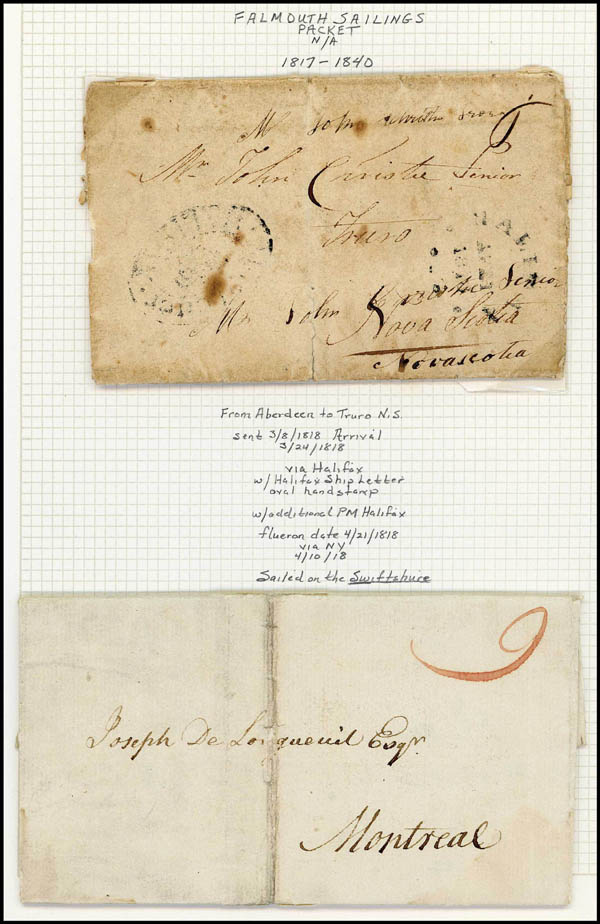 FALMOUTH SAILINGS
PACKET
N/A
1817-1840
Mr John
Mr. John Christie Senior
Truro
Mr John Senior
Nova Scotia
Novascotia
From Aberdeen to Truro N.S.
sent 3/8/1818 Arrival
3/24/1818
via Halifax
w/Halifax Ship Letter
oval handstamp
w/additional PM Halifax
flueron date 4/21/1818
via NY
4/10/18
Sailed on the Swiftshure
Joseph De Longueuil Esqr.
Montreal